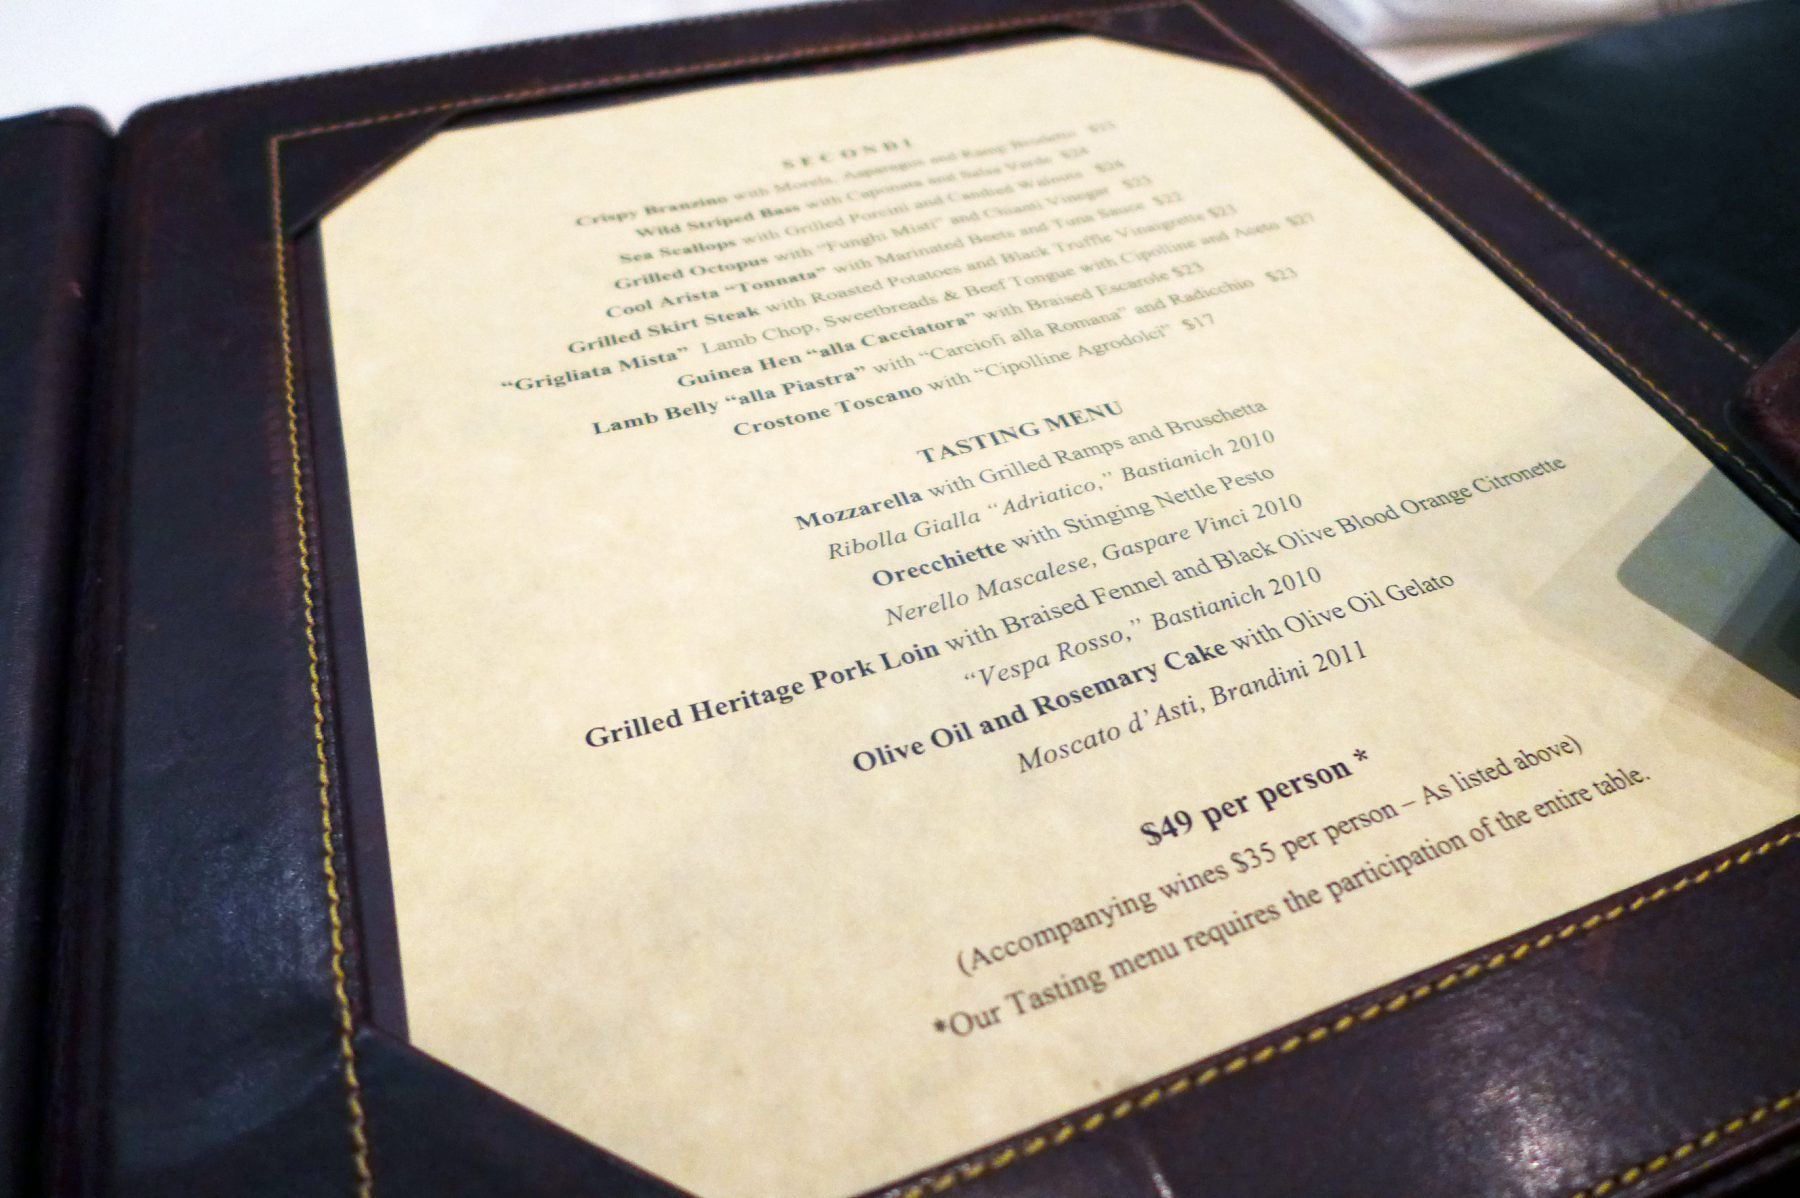 SECONDI
Crispy Branzino with Morels, Asparagus and Ramp Brodetto $25
Wild Striped Bass with Caponata and Salsa Verde $24
Sea Scallops with Grilled Porcini and Candied Walnuts $24
Grilled Octopus with “Funghi Misti” and Chianti Vinegar $23
Cool Arista “Tonnata” with Marinated Beets and Tuna Sauce $22
Grilled Skirt Steak with Roasted Potatoes and Black Truffle Vinaigrette $23
“Grigliata Mista” Lamb Chop, Sweetbreads & Beef Tongue with Cipolline and Aceto $27
Guinea Hen “alla Cacciatora” with Braised Escarole $23
Lamb Belly “alla Piastra” with “Carciofi alla Romana” and Radicchio $23
Crostone Toscano with “Cipolline Agrodolci” $17
TASTING MENU
Mozzarella with Grilled Ramps and Bruschetta
Ribolla Gialla “Adriatico,” Bastianich 2010
Orecchiette with Stinging Nettle Pesto
Nerello Mascalese, Gaspare Vinci 2010
Grilled Heritage Pork Loin with Braised Fennel and Black Olive Blood Orange Citronette
“Vespa Rosso,” Bastianich 2010
Olive Oil and Rosemary Cake with Olive Oil Gelato
Moscato d’Asti, Brandini 2011
$49 per person *
(Accompanying wines $35 per person – As listed above)
*Our Tasting menu requires the participation of the entire table.